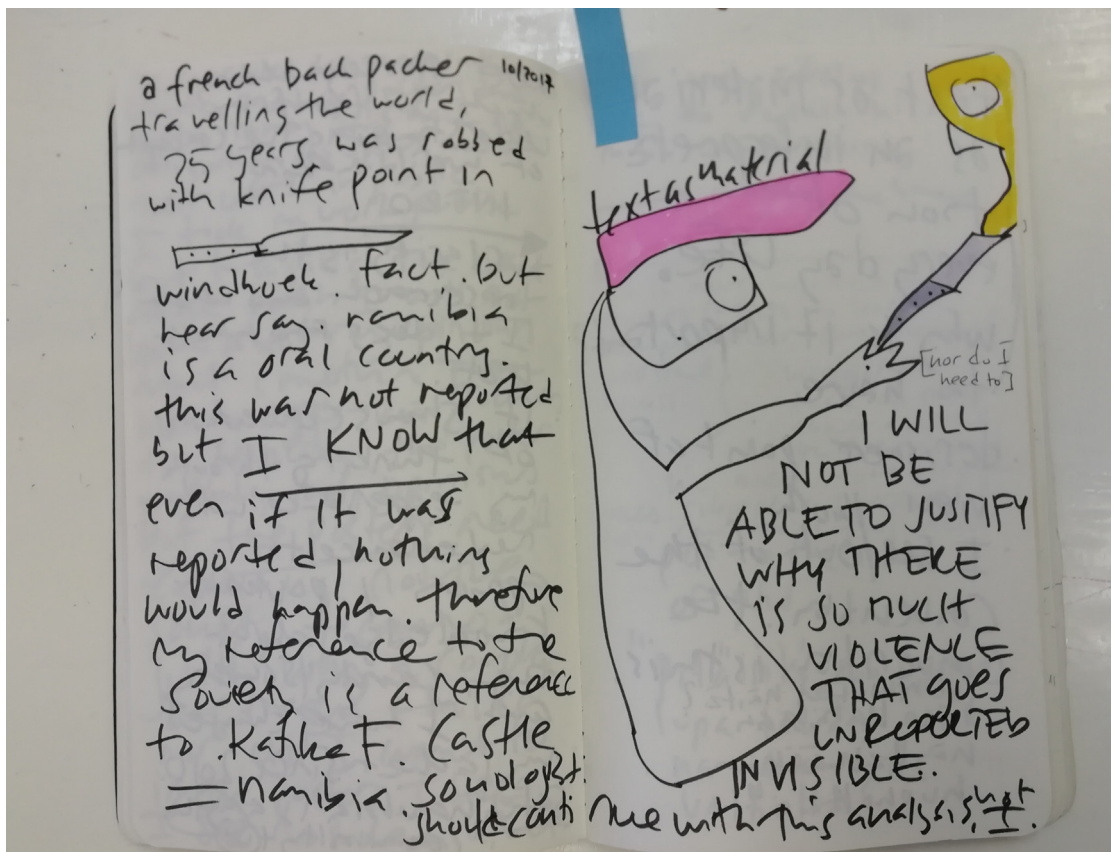 a french back packer 10/2017
travelling the world,
35 years, was robbed
with knife point in
windhuek. fact. but
hear say. namibia
is a oral country.
this was not reported
but I KNOW that
even if it was
reported, nothing
would happen. therefore
my reference to the
society is a reference
to Kafka F. Castle
= namibia. sociologist
should continue with this analysis, not I.
text as material
[nor do I
need to]
I WILL
NOT BE
ABLE TO JUSTIFY
WHY THERE
IS SO MUCH
VIOLENCE
THAT GOES
UNREPORTED
INVISIBLE.